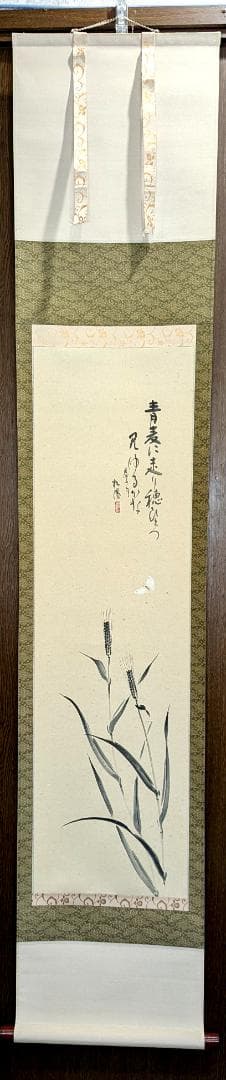 青麦に走り穂ひとつ
見ゆるかな